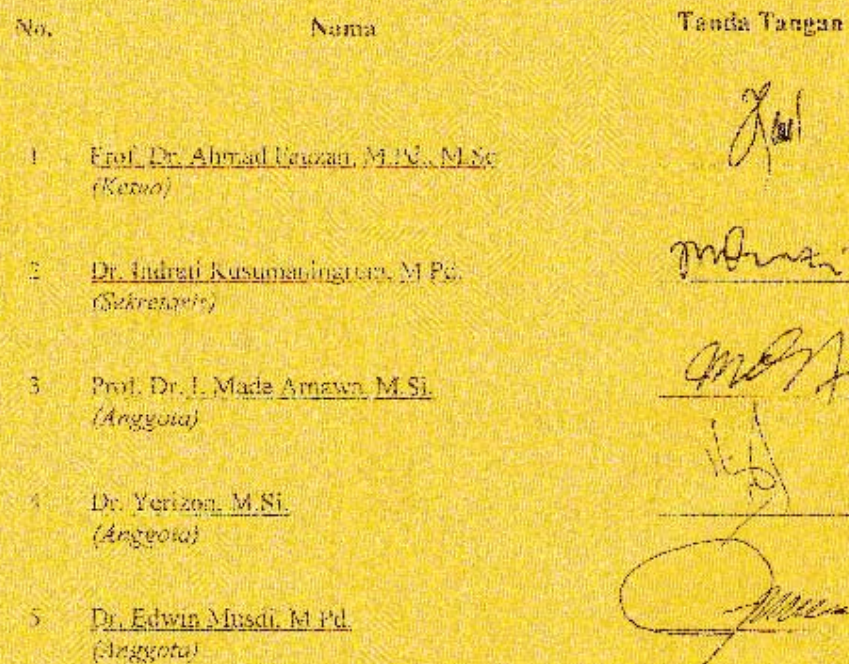 No. Nama Tanda Tangan
1 Prof. Dr. Ahmad Fauzan, M.Pd., M.Sc
(Ketua)
2 Dr. Indrati Kusumaningrum, M.Pd.
(Sekretaris)
3 Prof. Dr. I. Made Arnawa, M.Si.
(Anggota)
4 Dr. Yerizon, M.Si.
(Anggota)
5 Dr. Edwin Musdi, M.Pd.
(Anggota)